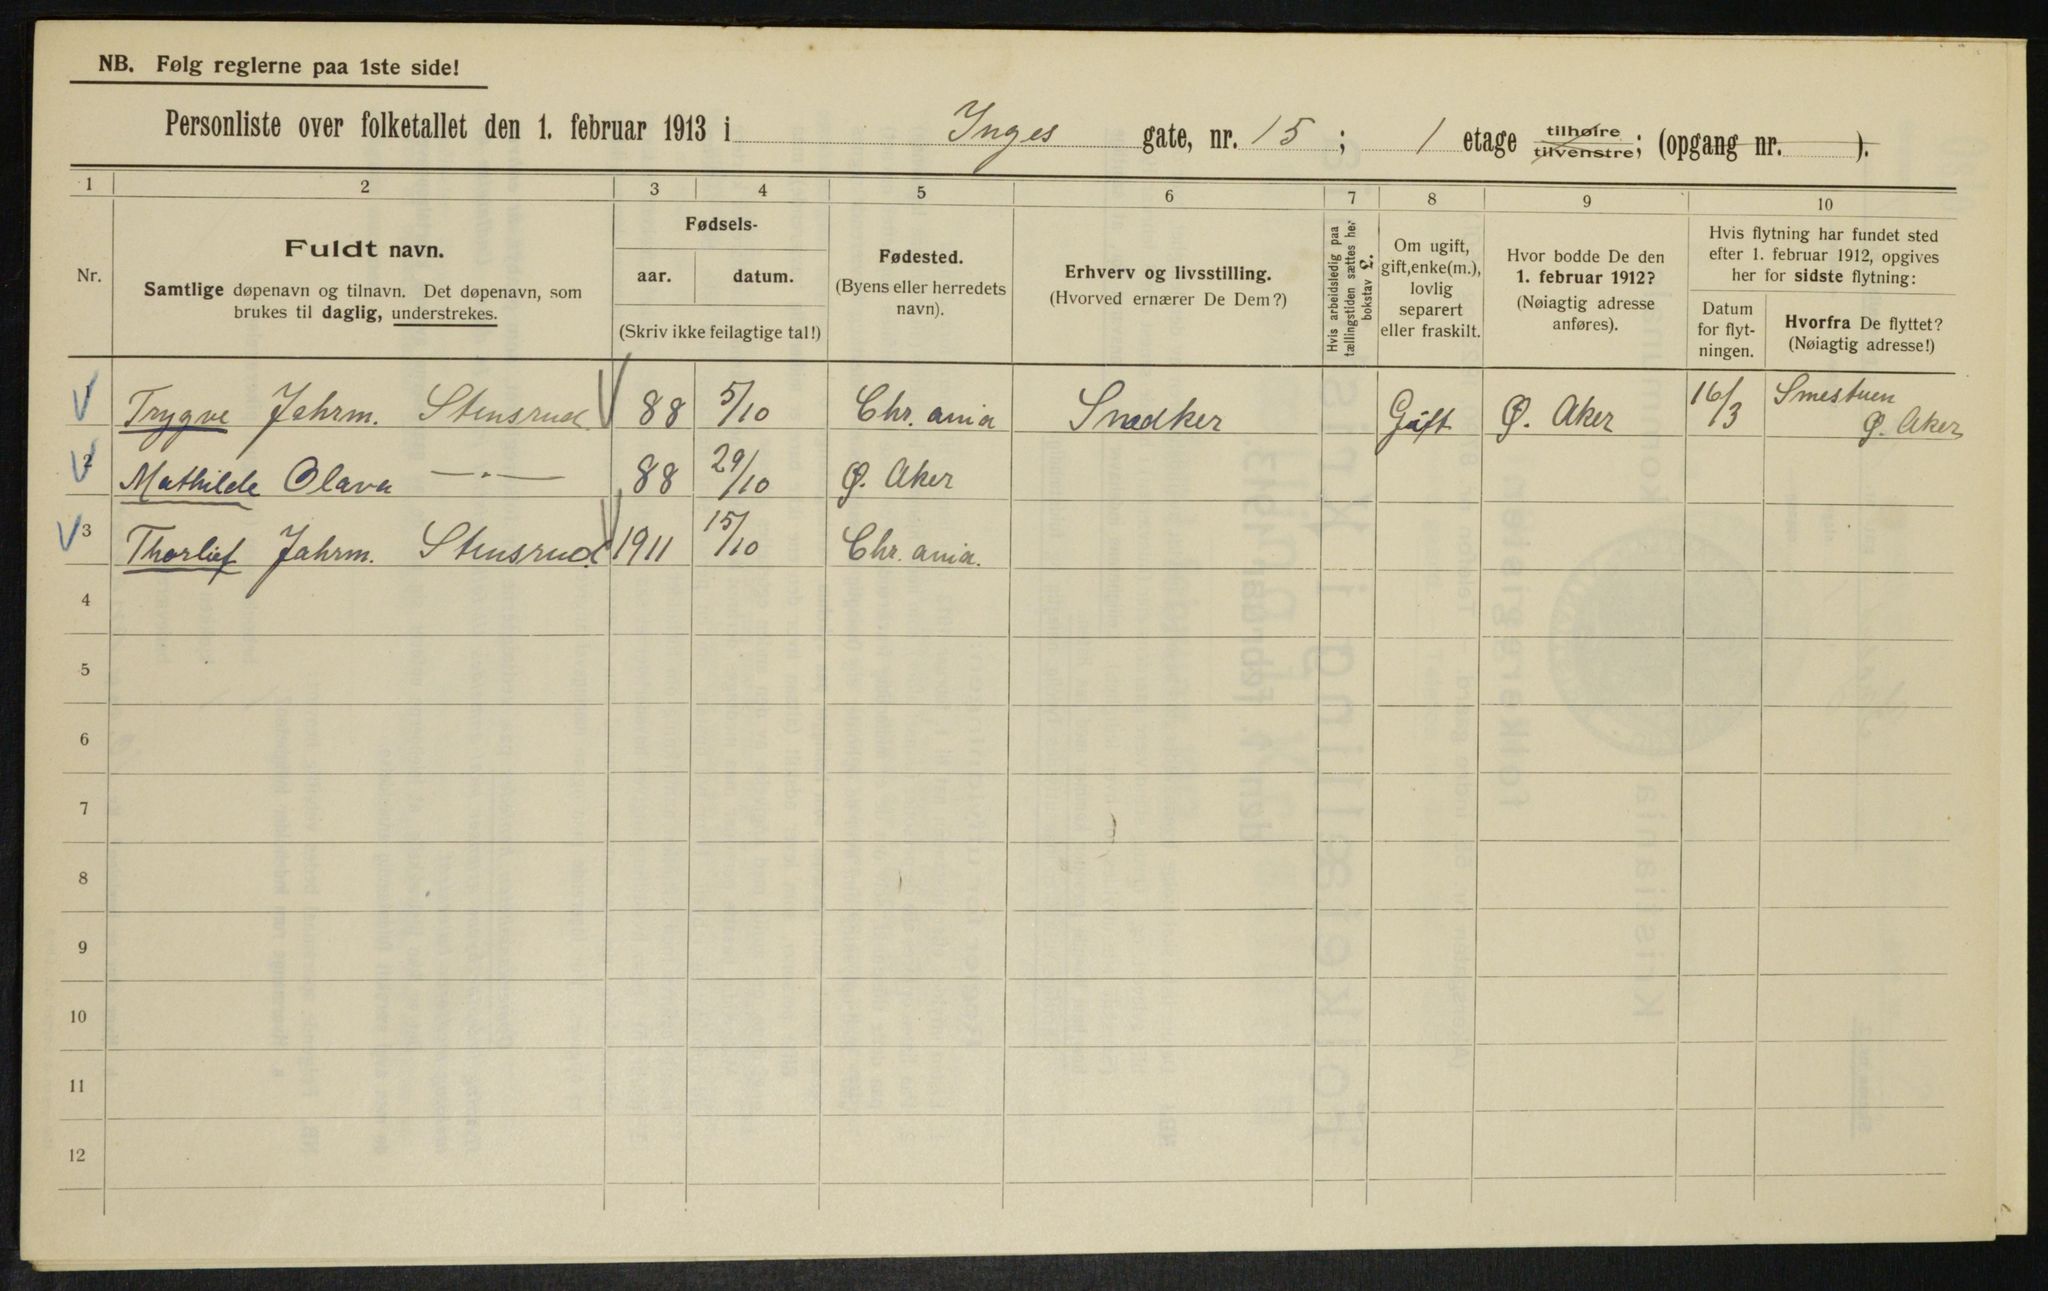 NB. Følg reglerne paa 1ste side!
Personliste over folketallet den 1. februar 1913 i Inges gate, nr. 15 ; 1 etage tilhøire tilvenstre; (opgang nr. ).
1 2 3 4 5 6 7 8 9 10
Nr.
Fuldt navn.
Samtlige døpenavn og tilnavn. Det døpenavn, som
brukes til daglig, understrekes.
Fødsels-
aar. datum.
(Skriv ikke feilagtige tal!)
Fødested.
(Byens eller herredets
navn).
Erhverv og livsstilling.
(Hvorved ernærer De Dem?)
Hvis arbeidsledig paa
tællingstiden sættes her
bokstav L.
Om ugift,
gift, enke(m.),
lovlig
separert
eller fraskilt.
Hvor bodde De den
1. februar 1912?
(Nøiagtig adresse
anføres).
Hvis flytning har fundet sted
efter 1. februar 1912, opgives
her for sidste flytning:
Datum
for flyt-
ningen.
Hvorfra De flyttet?
(Nøiagtig adresse!)
1 Trygve Jahrm. Stensrud. 88 5/10 Chr. ania Snedker Gift Ø. Aker 16/3 Smestuen
Ø. Aker
2 Mathilde Olava —·— 88 29/10 Ø. Aker
3 Thorlief Jahrm. Stensrud 1911 15/10 Chr. ania.
4
5
6
7
8
9
10
11
12